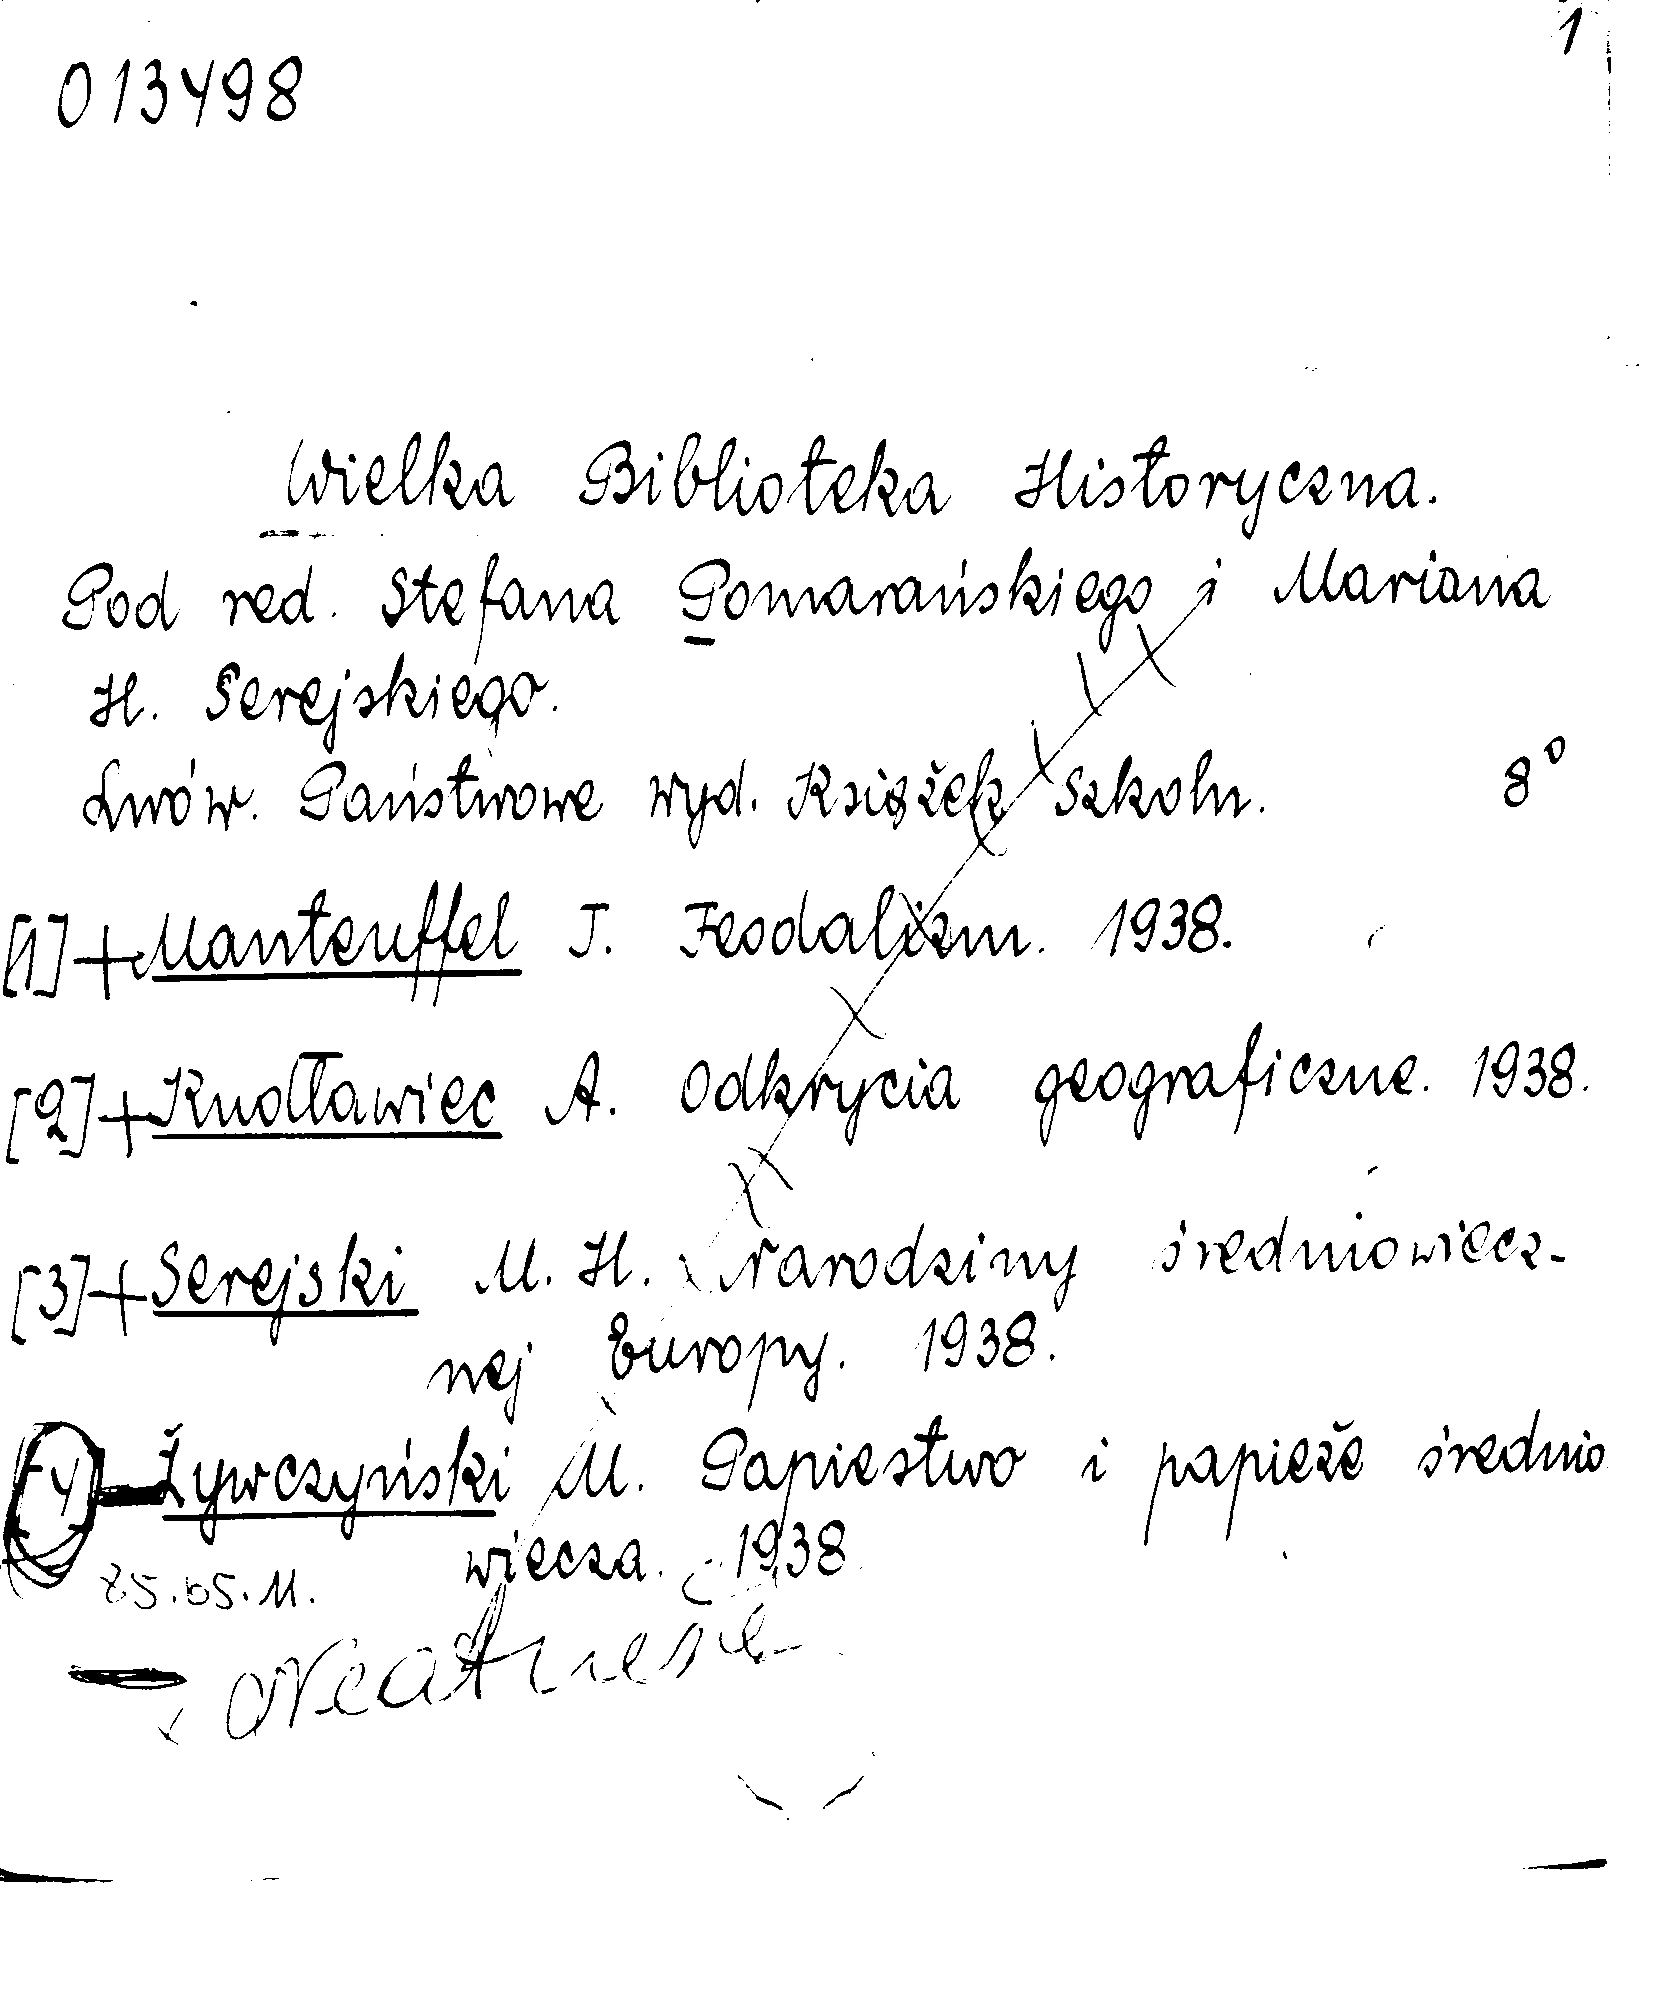 1
013498
Wielka Biblioteka Historyczna.
Pod red. Stefana Pomarańskiego i Mariana
H. Serejskiego.
Lwów. Państwowe wyd. Książek Szkoln. 8°
[1] + Manteuffel T. Feodalizm. 1938.
[2] + Knotławiec A. Odkrycia geograficzne. 1938.
[3] + Serejski M. H. Narodziny średniowiecz-
nej Europy. 1938.
[4] Żywczyński M. Papiestwo i papieże średnio
wiecza. 1938
25.05.11.